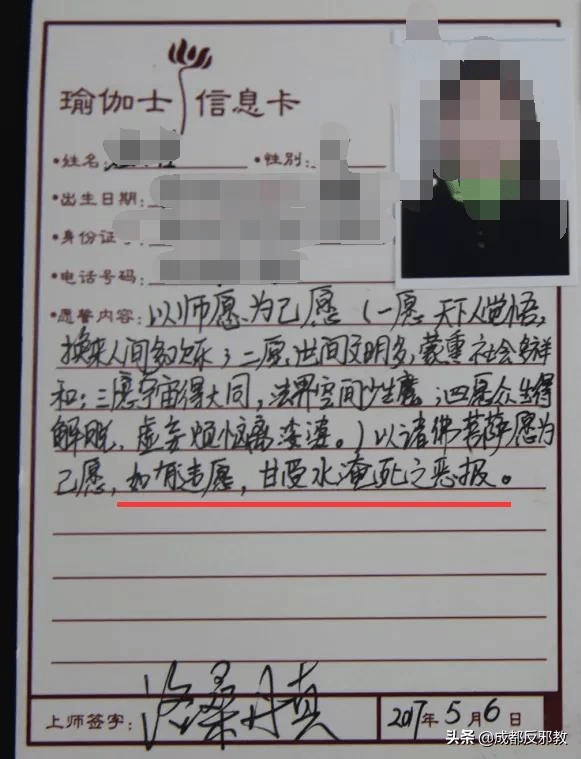 瑜伽士信息卡
•姓名:
•性别:
•出生日期:
•身份证号:
•电话号码:
•愿誓内容: 以师愿为己愿（一愿天下人觉悟,
换来人间多欢乐；二愿世间文明多,蒙熏社会多祥
和；三愿宇宙得大同,法界空间少生魔；四愿众生得
解脱,虚妄烦恼离娑婆。）以诸佛菩萨愿为
己愿,如有违愿,甘受水淹死之恶报。
上师签字: 洛桑丹真 2017年5月6日
头条 @成都反邪教